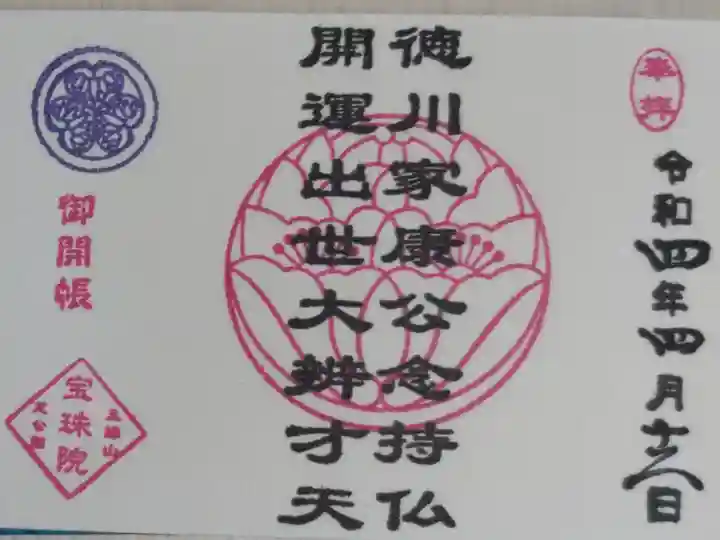 奉拝
令和四年四月十六日
徳川家康公念持仏
開運出世大辨才天
御開帳
三縁山
宝珠院
芝公園